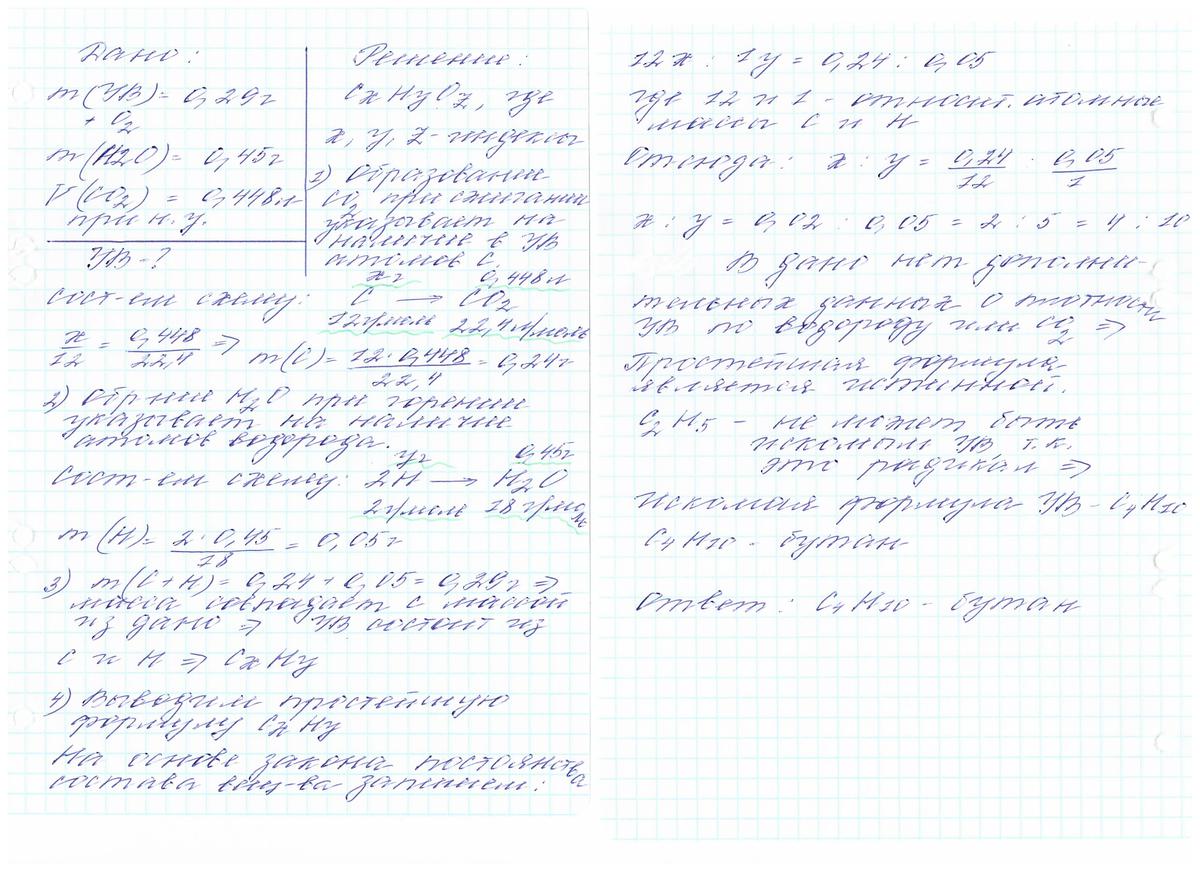 Дано:
m(УВ) = 0,29г
+ O2
m(H2O) = 0,45г
V(CO2) = 0,448л
при н.у.
УВ - ?
Решение:
CxHyOz, где
x, y, z - индексы
1) Образование
CO2 при сжигании
указывает на
наличие в УВ
атомов C,
xг 0,448л
Сост-ем схему: C → CO2
12г/моль 22,4л/моль
x/12 = 0,448/22,4 ⇒ m(C) = 12·0,448/22,4 = 0,24г
2) Обр-ние H2O при горении
указывает на наличие
атомов водорода.
yг 0,45г
Сост-ем схему: 2H → H2O
2г/моль 18г/моль
m(H) = 2·0,45/18 = 0,05г
3) m(C+H) = 0,24 + 0,05 = 0,29г ⇒
масса совпадает с массой
из дано ⇒ УВ состоит из
C и H ⇒ CxHy
4) Выводим простейшую
формулу CxHy
На основе закона постоянства
состава вещ-ва запишем:
12x : 1y = 0,24 : 0,05
где 12 и 1 - относит. атомные
массы C и H
Отсюда: x : y = 0,24/12 : 0,05/1
x : y = 0,02 : 0,05 = 2 : 5 = 4 : 10
В дано нет дополни-
тельных данных о плотности
УВ по водороду или CO2 ⇒
Простейшая формула
является истинной.
C2H5 - не может быть
искомым УВ, т.к.
это радикал ⇒
Искомая формула УВ - C4H10
C4H10 - бутан
Ответ: C4H10 - бутан